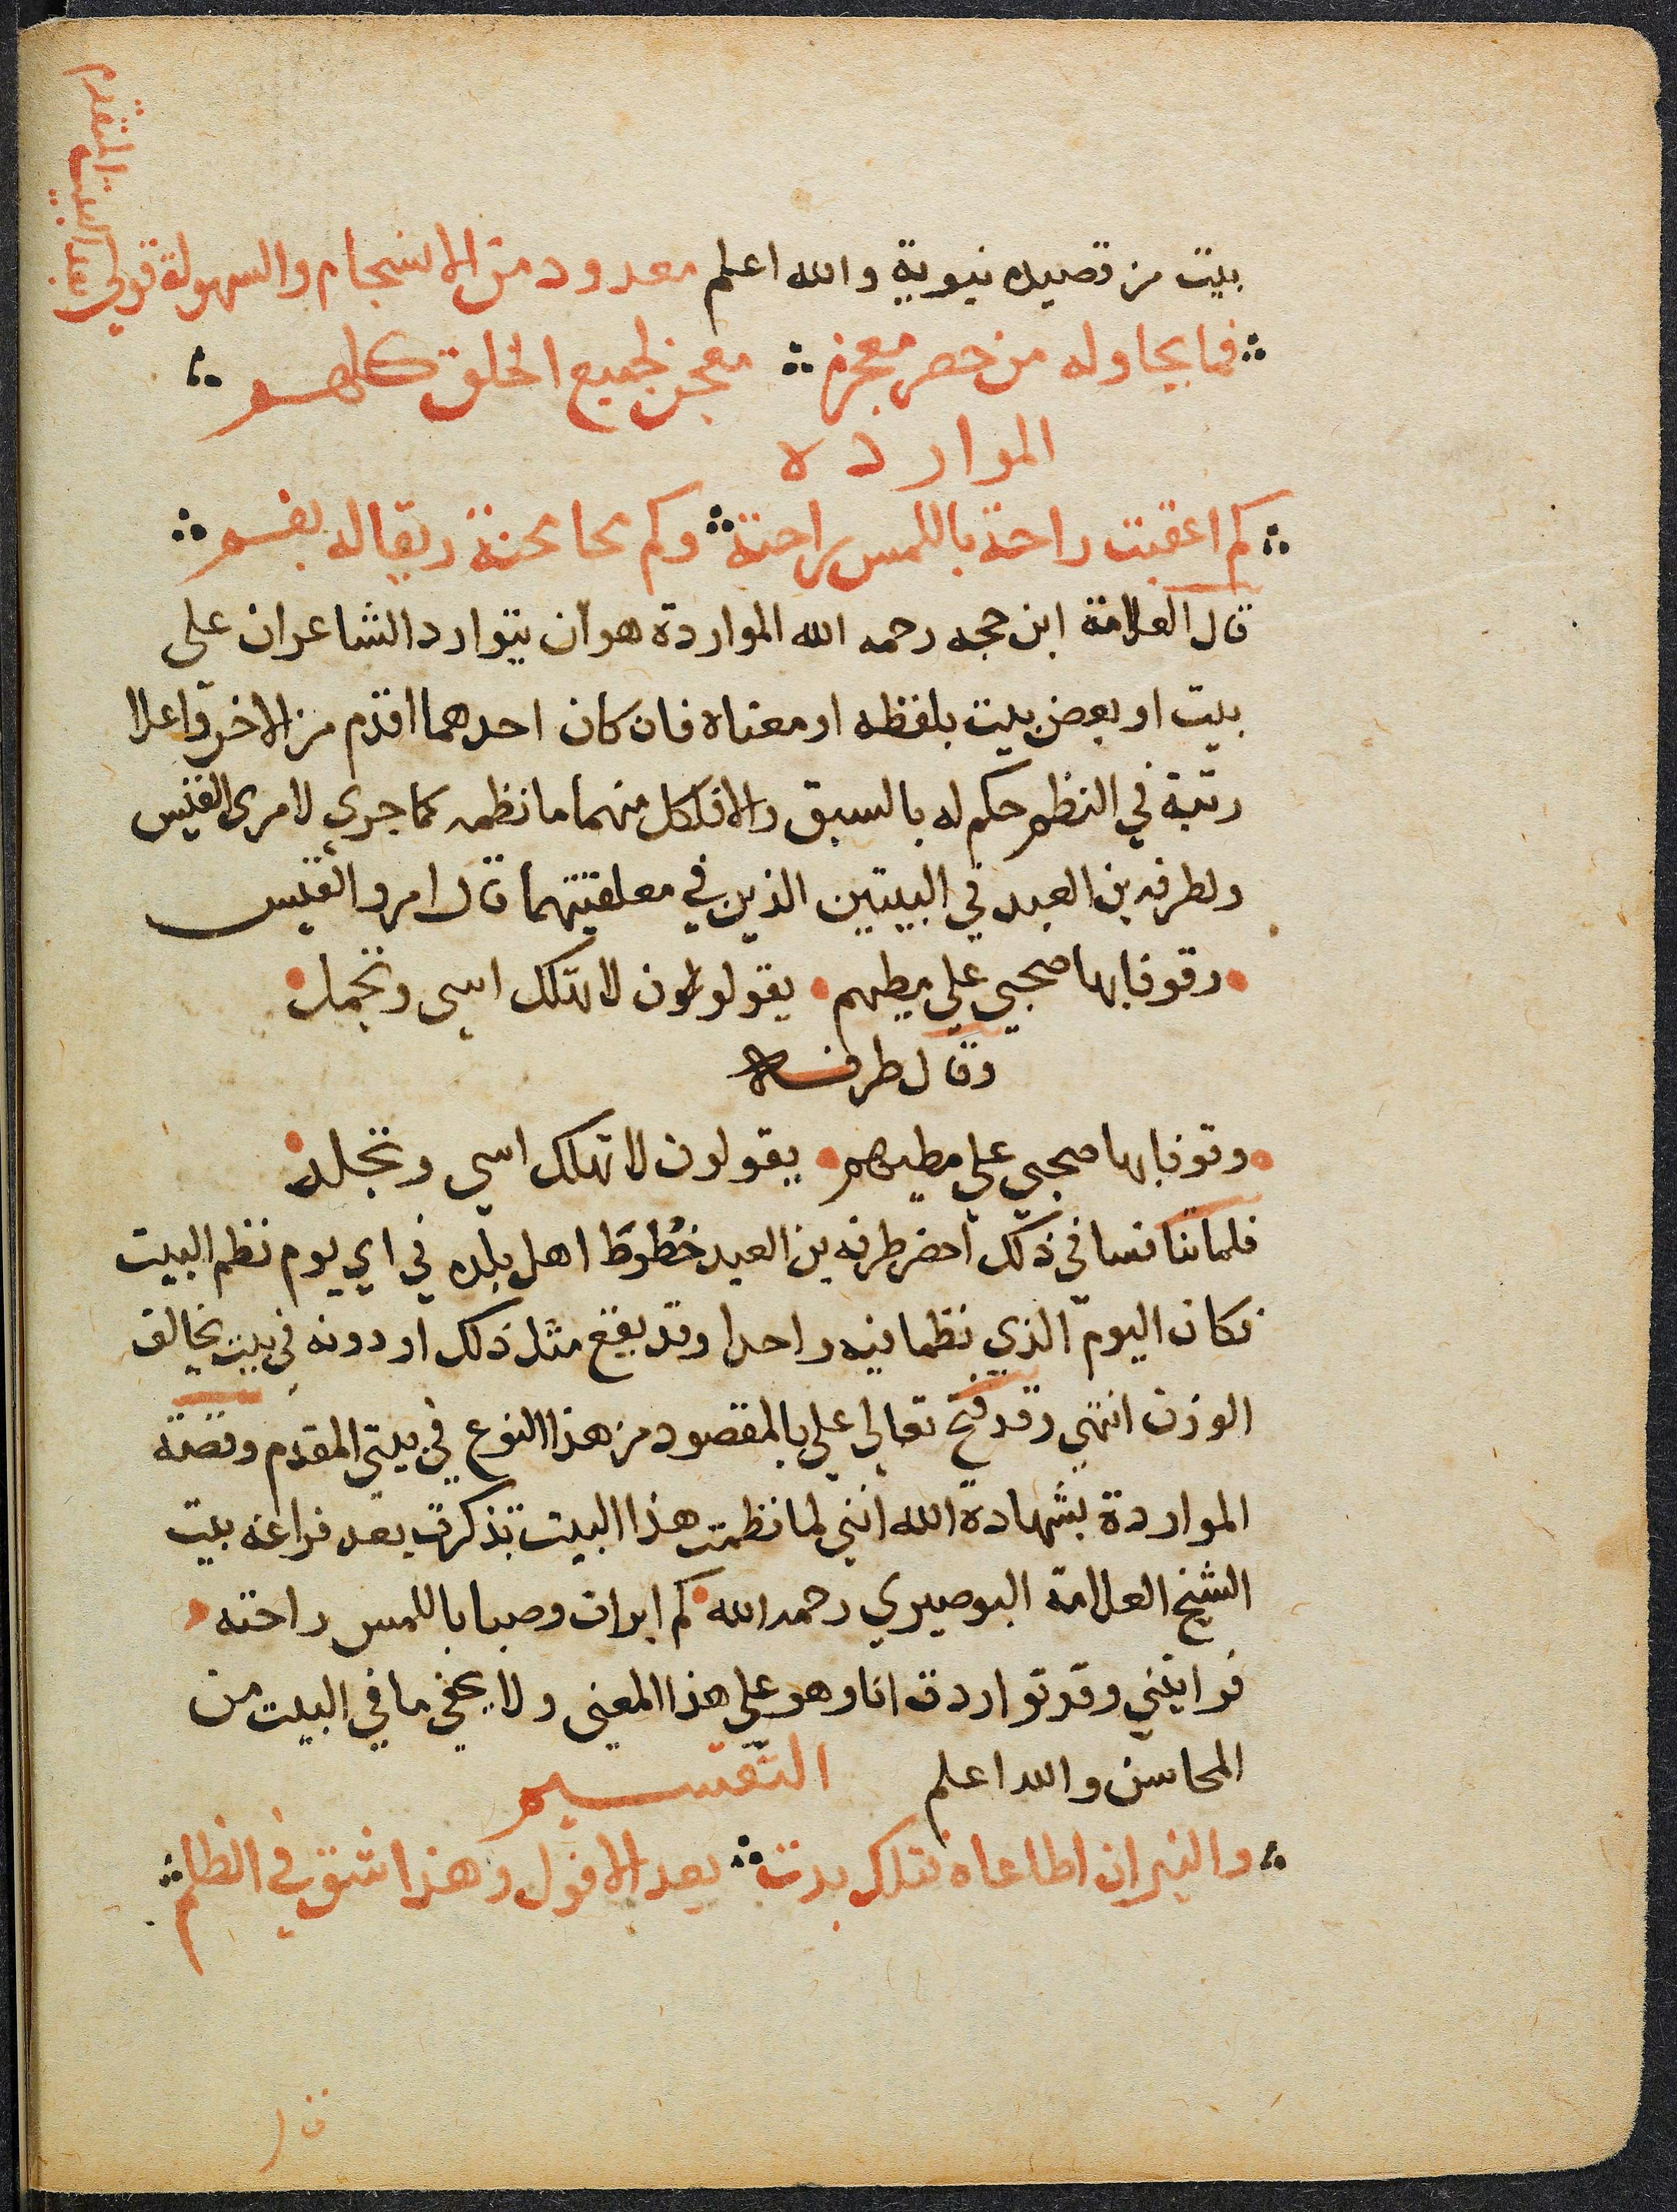 بيت من قصيده نبوية والله اعلم معدود من الانسجام والسهولة قولي
بعد البيت المتقدم
فما يحاوله من حصر معجزه معجز لجميع الخلق كلهم
المواردة
كم اعقبت راحة باللمس راحته وكم محا محنة ريقا له بفم
قال العلامة ابن حجه رحمه الله المواردة هو ان يتوارد الشاعران على
بيت او بعض بيت بلفظه او معناه فان كان احدهما اقدم من الاخر واعلا
رتبة في النظم حكم له بالسبق والا فلكل منهما ما نظمه كما جرى لامرى القيس
ولطرفه بن العبد في البيتين الذين في معلقتيهما قال امرو القيس
وقوفا بها صحبي علي مطيهم يقولون لا تهلك اسى وتجمل
وقال طرفه
وقوفا بها صحبي علي مطيهم يقولون لا تهلك اسي وتجلد
فلما تنافسا في ذلك احضر طرفه بن العبد خطوط اهل بلده في اي يوم نظم البيت
فكان اليوم الذي نظما فيه واحدا وقد يقع مثل ذلك او دونه في بيت يخالف
الوزن انتهي وقد فتح تعالي علي بالمقصود من هذا النوع في بيتي المقدم وقصة
المواردة بشهادة الله انني لما نظمت هذا البيت تذكرت بعد فراغه بيت
الشيخ العلامة البوصيري رحمه الله كم ابرات وصبا باللمس راحته
فرايتني وقد تواردت انا وهو علي هذا المعنى ولا يخفي ما في البيت من
المحاسن والله اعلم التقسيم
والنيران اطاعاه فتلك بدت بعد الافول وهذا شق في الظلم